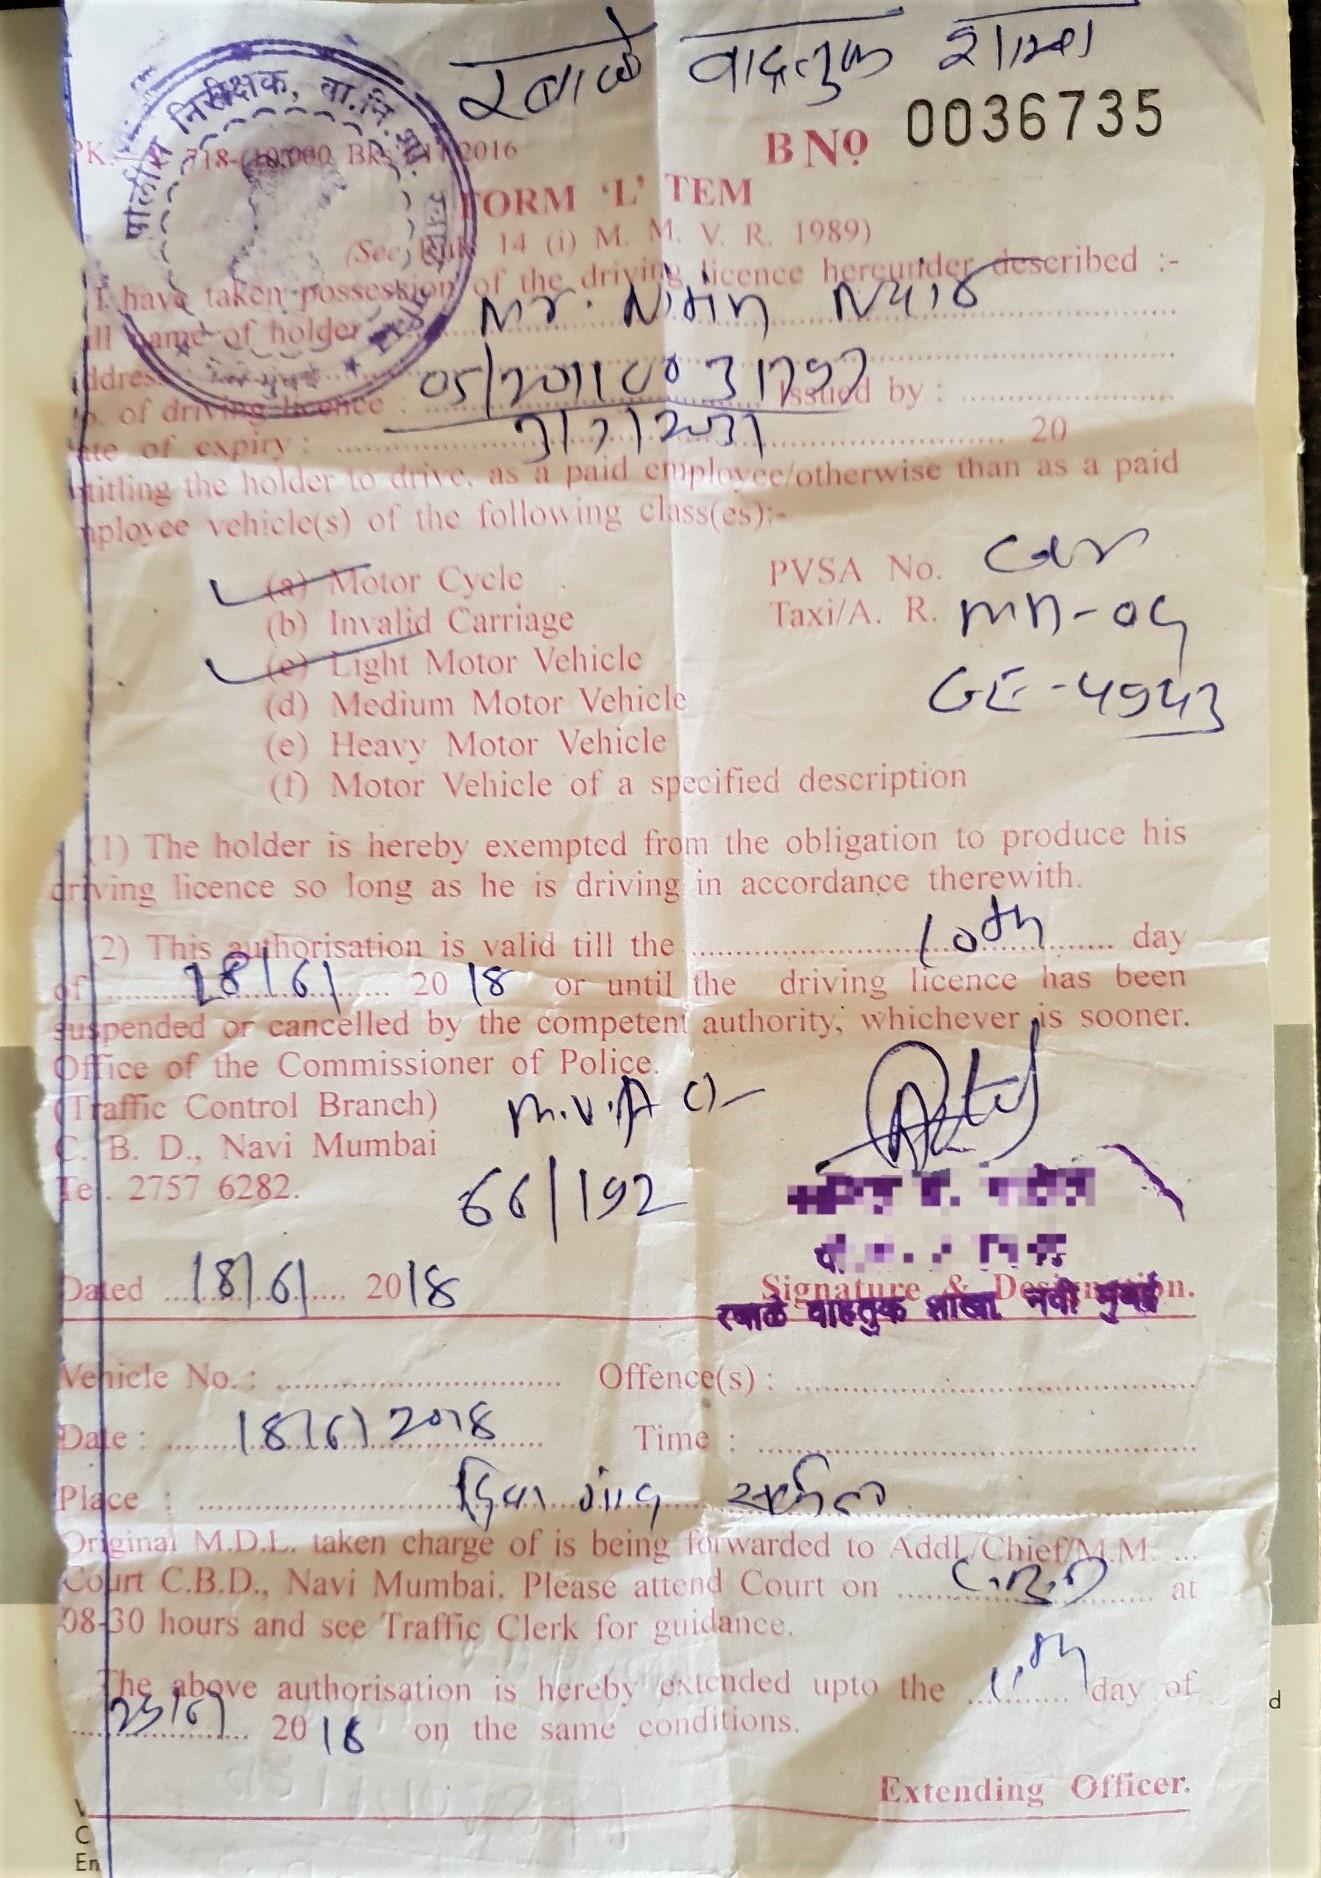 रबाळे वाहतुक शाखा
पोलीस निरीक्षक, वा.नि.शा.
718-(10,000 BKs 2016
B No 0036735
FORM 'L' TEM
(See Rule 14 (i) M. M. V. R. 1989)
I have taken possession of the driving licence hereunder described :-
ll name of holder Mr. Nitin Nair
ddres
o. of driving licence : issued by :
ate of expiry : 20
titling the holder to drive, as a paid employee/otherwise than as a paid
mployee vehicle(s) of the following class(es):-
(a) Motor Cycle PVSA No. Car
(b) Invalid Carriage Taxi/A. R. MH-04
(c) Light Motor Vehicle GE-4943
(d) Medium Motor Vehicle
(e) Heavy Motor Vehicle
(f) Motor Vehicle of a specified description
(1) The holder is hereby exempted from the obligation to produce his
driving licence so long as he is driving in accordance therewith.
(2) This authorisation is valid till the 10th day
of 18/6/ 2018 or until the driving licence has been
suspended or cancelled by the competent authority, whichever is sooner.
Office of the Commissioner of Police.
(Traffic Control Branch) M.V.A
C. B. D., Navi Mumbai
Tel. 2757 6282. 66/192
Dated 18/6/ 2018 Signature & Designation.
रबाळे वाहतुक शाखा नवी मुंबई
Vehicle No. : Offence(s) :
Date : 18/6/2018 Time :
Place : दिवा गांव सर्कल
Original M.D.L. taken charge of is being forwarded to Addl./Chief/M.M.
Court C.B.D., Navi Mumbai. Please attend Court on C.B.D at
08-30 hours and see Traffic Clerk for guidance.
The above authorisation is hereby extended upto the 11th day of
2018 on the same conditions.
Extending Officer.
d
C
En